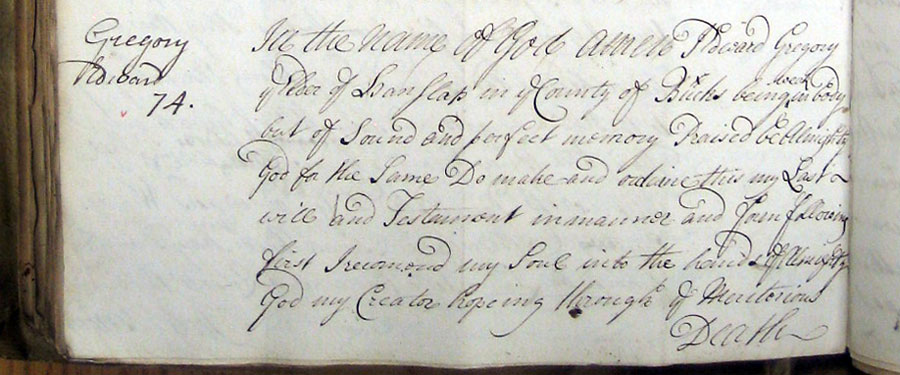 Gregory
Edward
74.
In the Name of God Amen I Edward Gregory
ye Elder of Hanslap in ye County of Bucks being weak in body
but of Sound and perfect memory Praised be Almighty
God for the Same Do make and ordaine this my Last
will and Testament in manner and form following
first I recomend my Soul into the hands of Almighty
God my Creator hopeing through ye Meritorious
Death